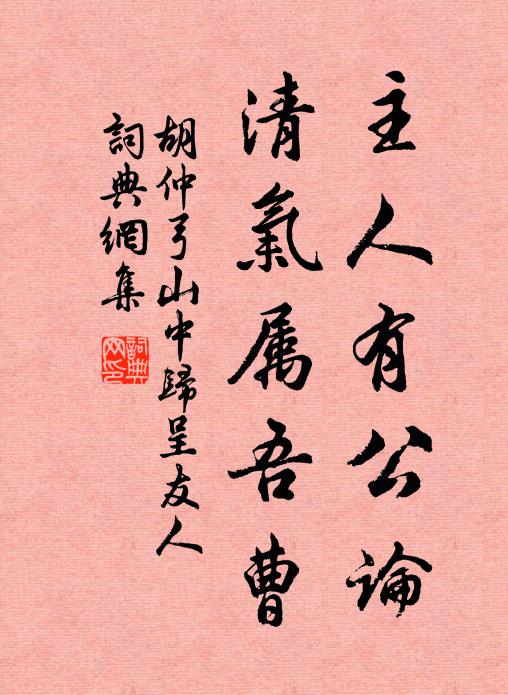 主人有公論
清氣属吾曹
胡仲弓山中歸呈友人
詞典網集
詞典網印